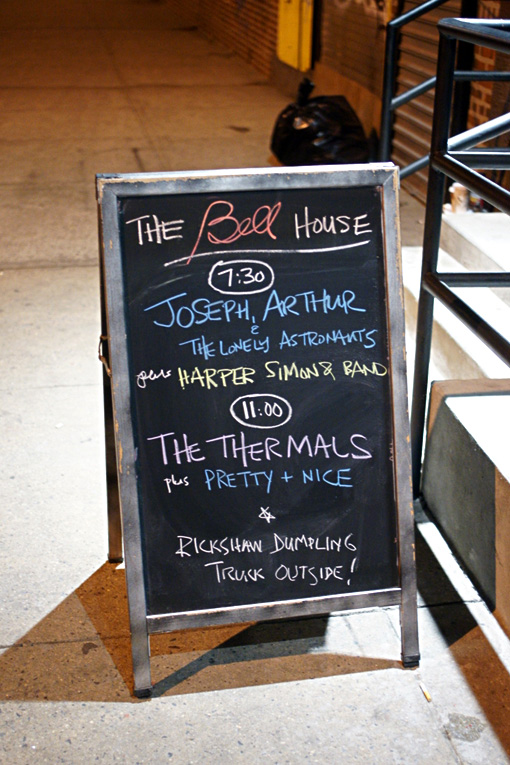 THE Bell HOUSE
7:30
JOSEPH, ARTHUR
&
THE LONELY ASTRONAUTS
plus HARPER SIMON & BAND
11:00
THE THERMALS
plus PRETTY + NICE
RICKSHAW DUMPLING
TRUCK OUTSIDE!